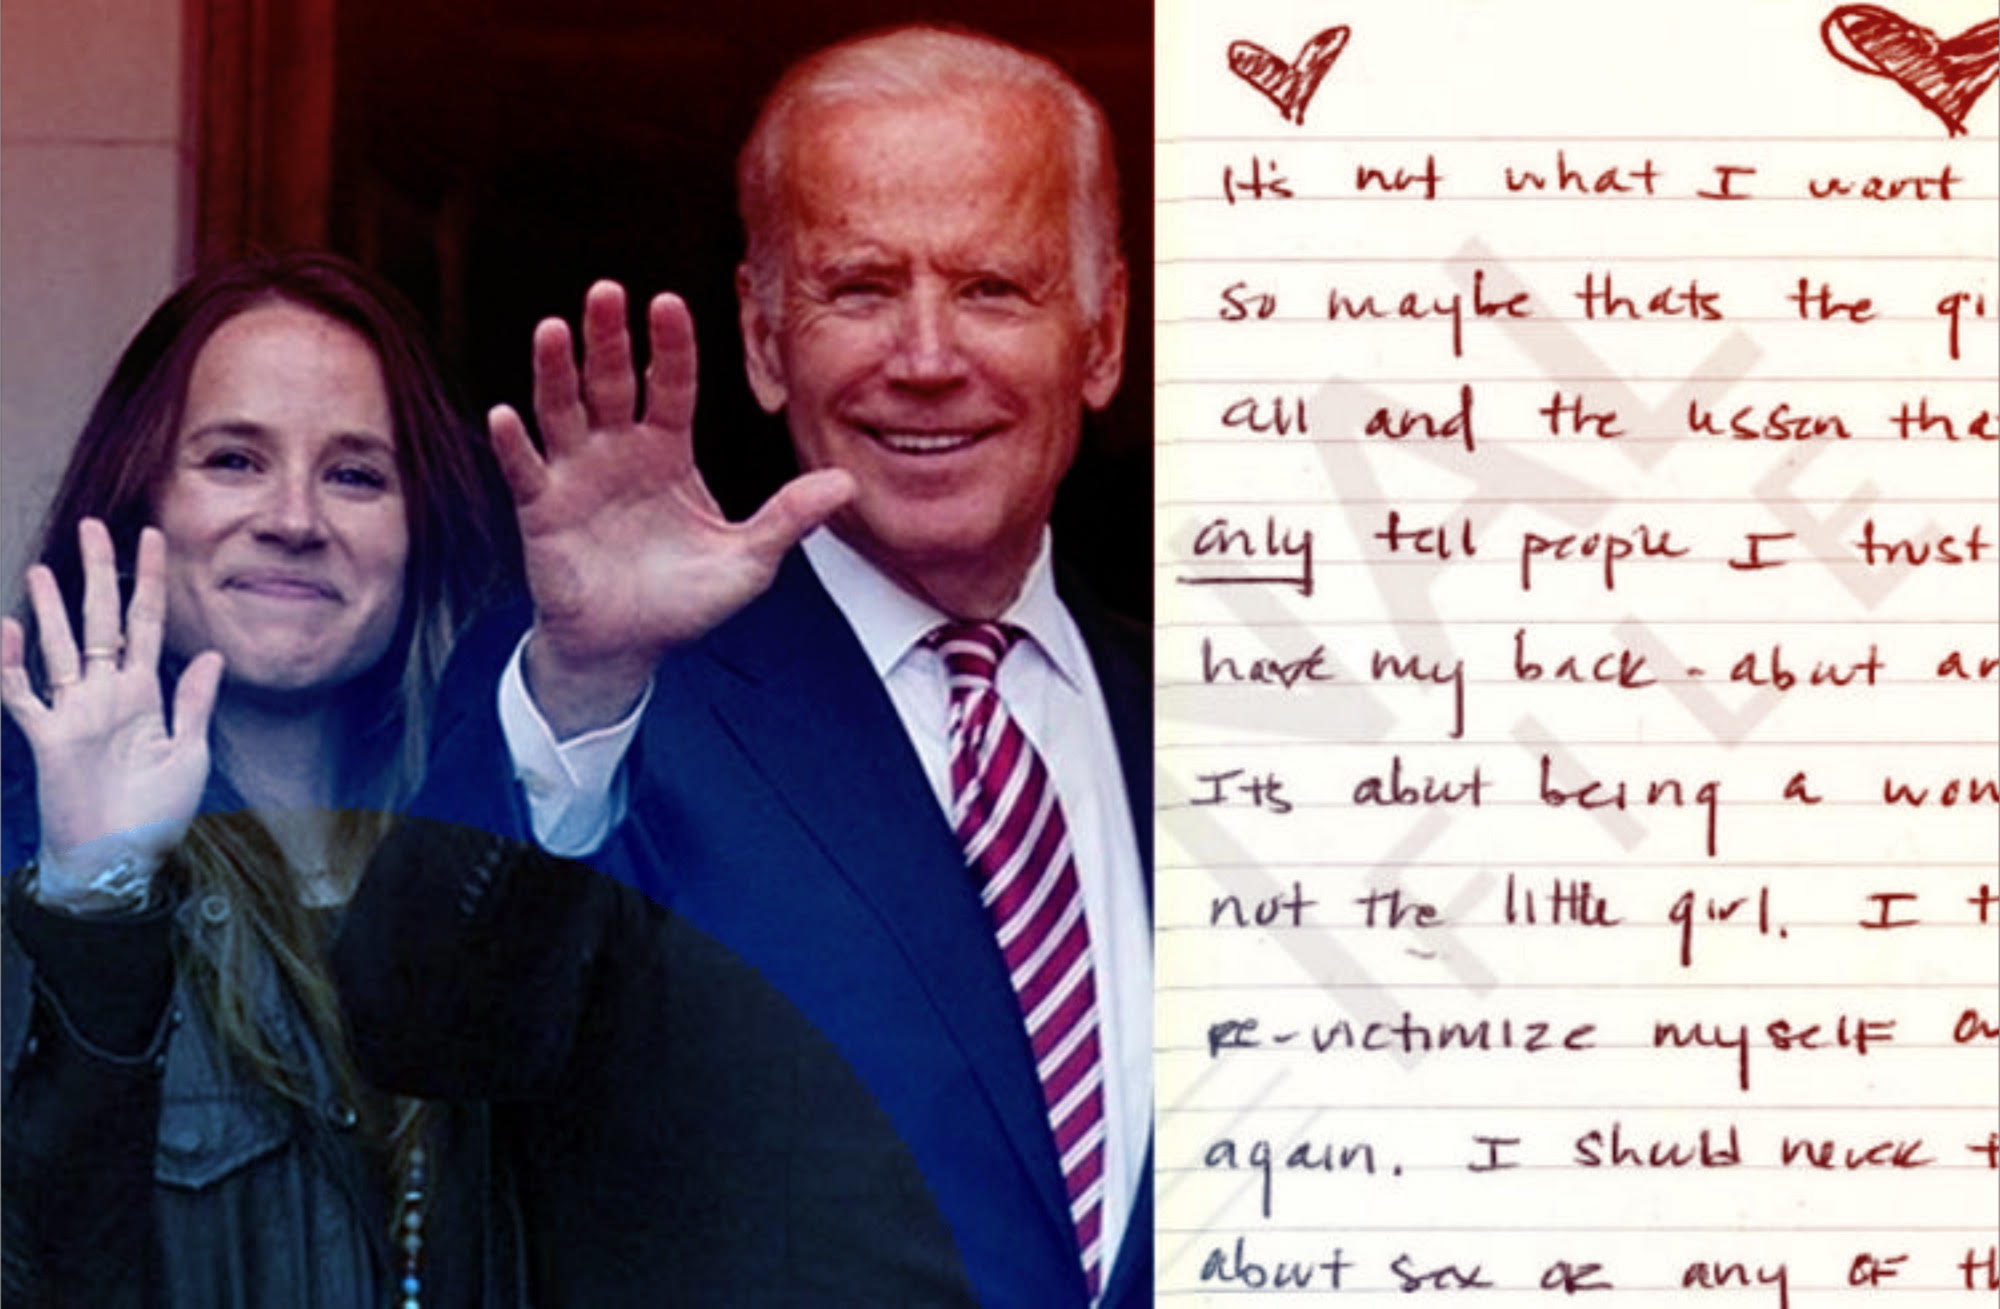 It's not what I want
so maybe thats the gi
all and the lesson tha
only tell people I trust
have my back - about an
Its about being a wom
not the little girl. I t
re-victimize myself ov
again. I should never t
about sex or any of th
NATIONAL FILE